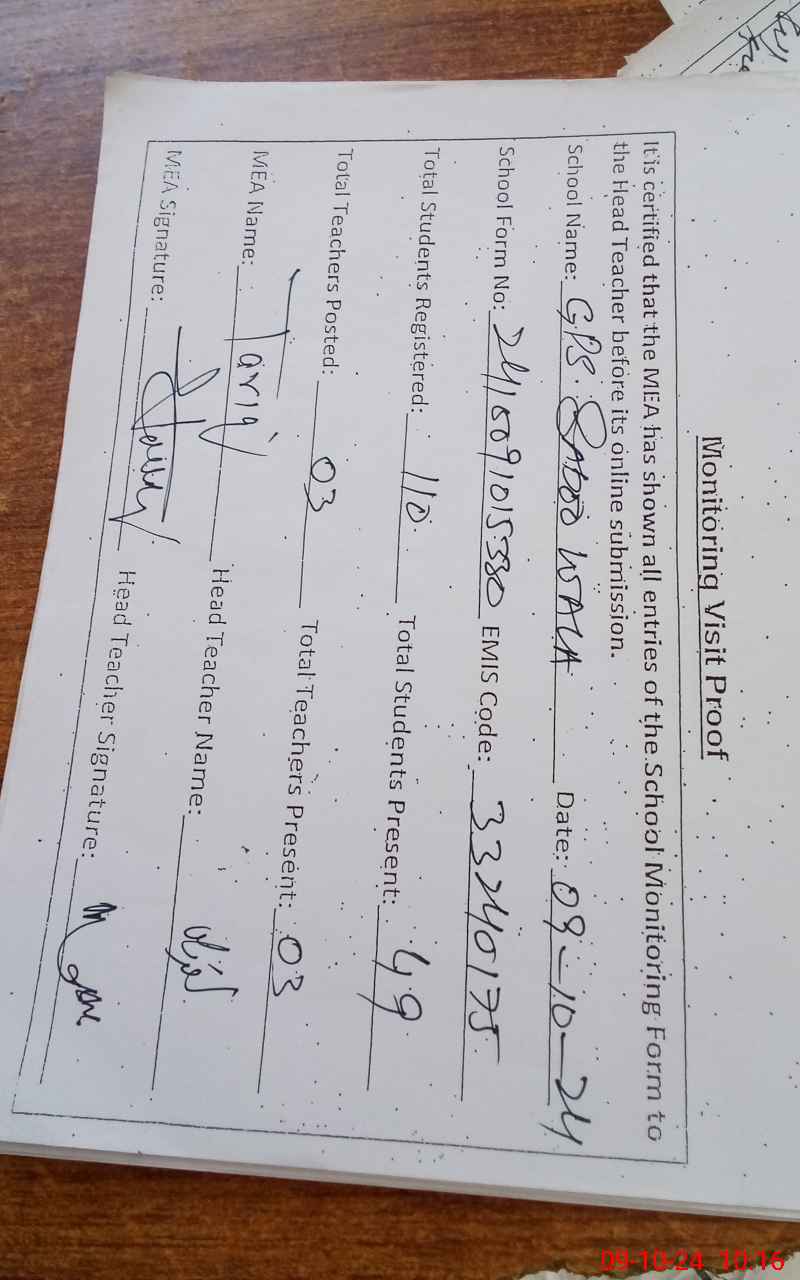 Monitoring Visit Proof
It is certified that the MEA has shown all entries of the School Monitoring Form to
the Head Teacher before its online submission.
School Name: GPS. Saboo WALA Date: 09-10-24
School Form No: 2416091015380 EMIS Code: 33240175
Total Students Registered: 110 Total Students Present: 49
Total Teachers Posted: 03 Total Teachers Present: 03
MEA Name: Tariq Head Teacher Name:
MEA Signature: Head Teacher Signature:
09-10-24 10:16